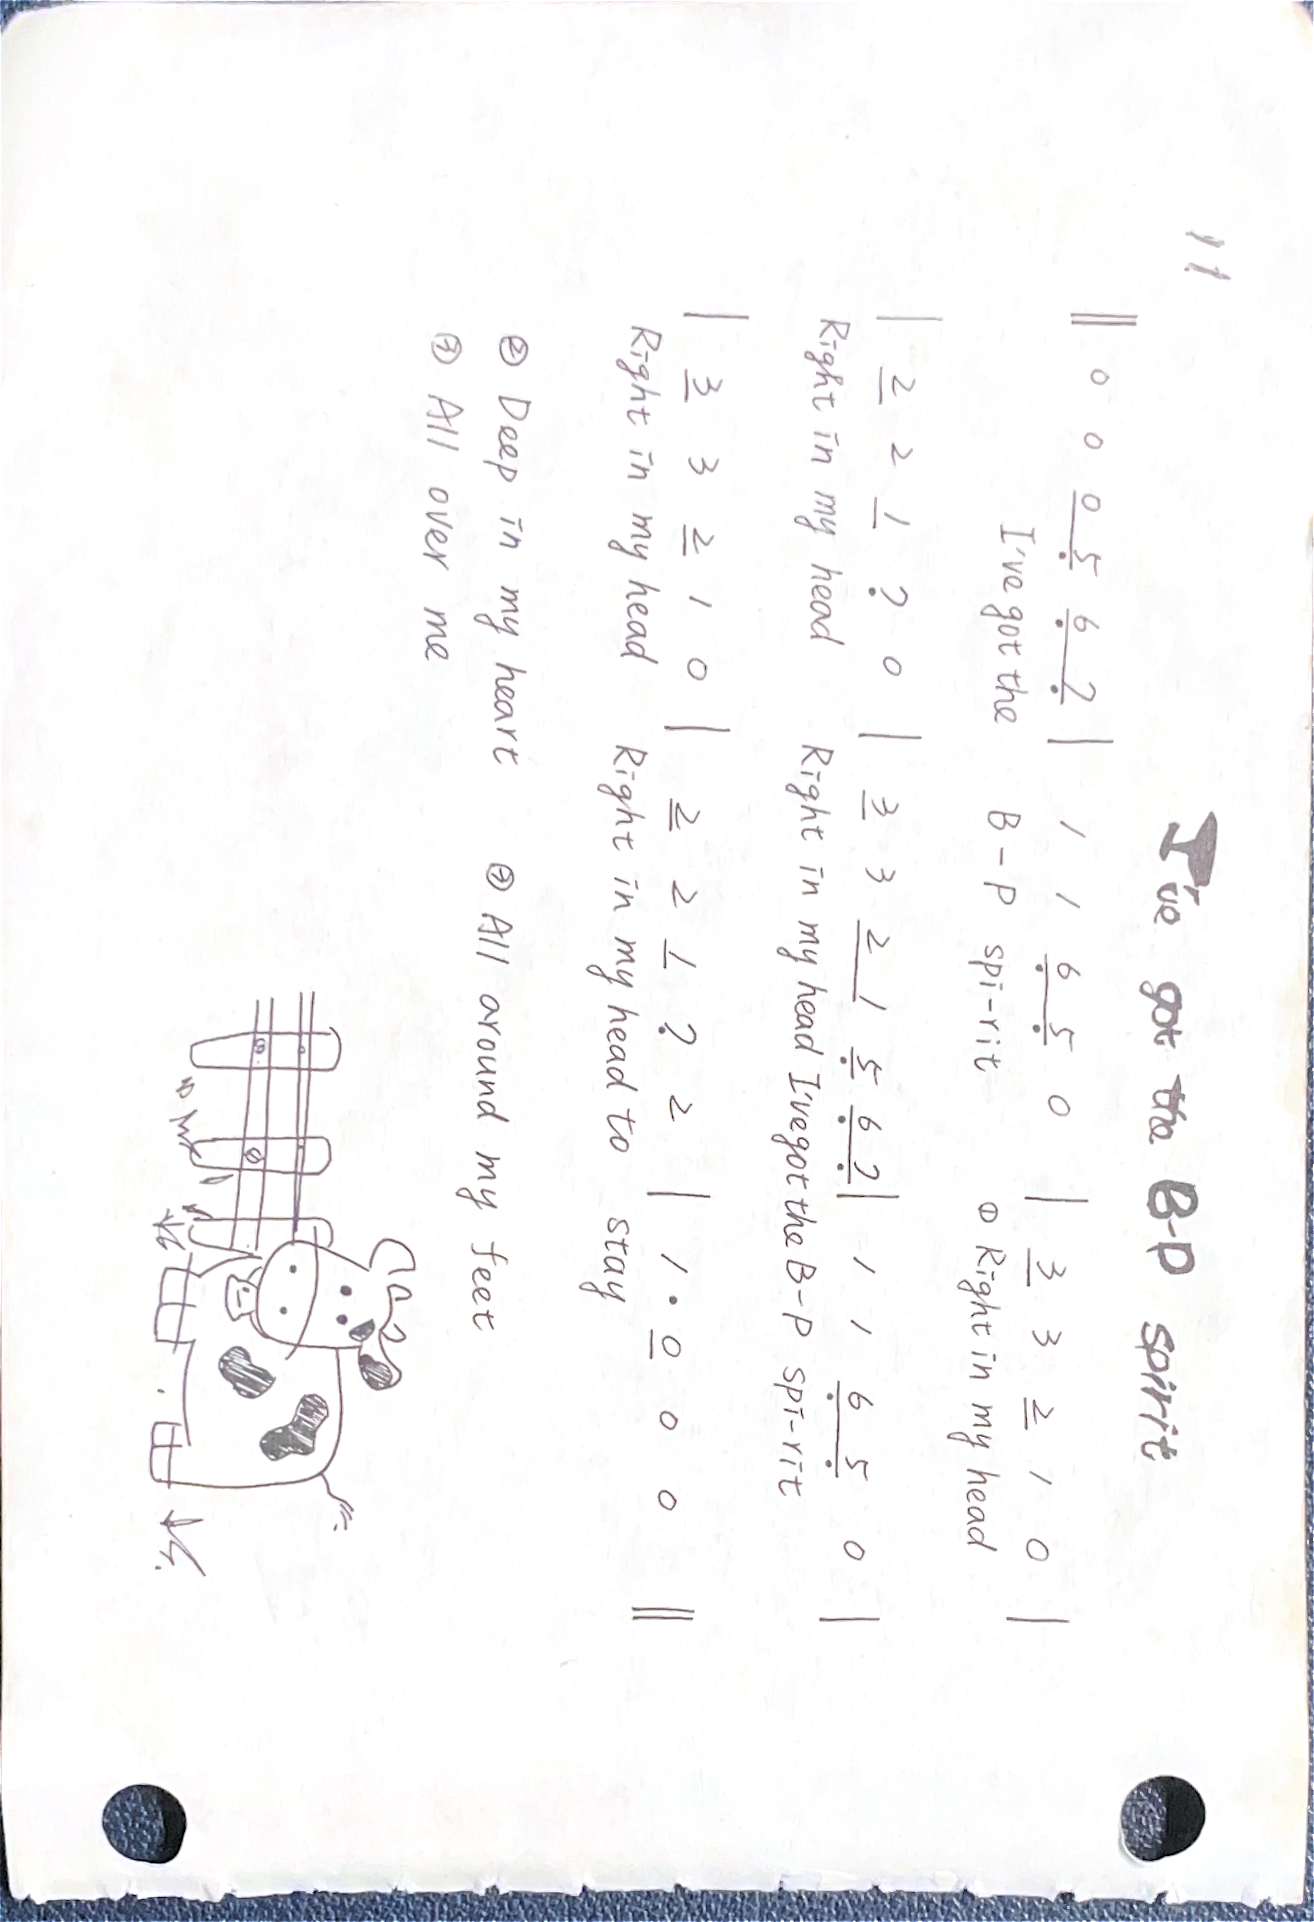 11
I've got the B-P spirit
‖ 0 0 0 5 6 7 | 1 1 6 5 0 | 3 3 2 1 0 |
I've got the B-P spi-rit ① Right in my head
| 2 2 1 7 0 | 3 3 2 1 5 6 7 | 1 1 6 5 0 |
Right in my head Right in my head I've got the B-P spi-rit
| 3 3 2 1 0 | 2 2 1 7 2 | 1 · 0 0 0 ‖
Right in my head Right in my head to stay
② Deep in my heart ③ All around my feet
④ All over me